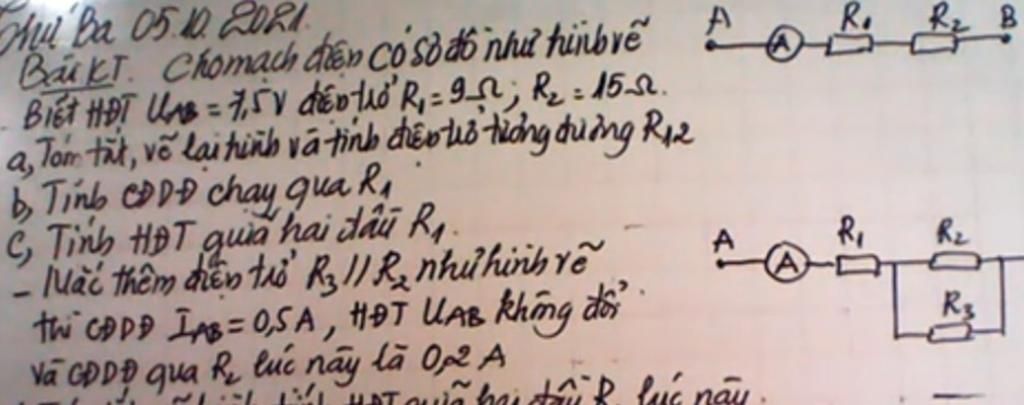 Thứ Ba 05.10.2021.
Bài KT. Cho mạch điện có sơ đồ như hình vẽ
- Biết HĐT UAB = 7,5V điện trở R1 = 9Ω; R2 = 15Ω.
a, Tóm tắt, vẽ lại hình và tính điện trở tương đương R1,2
b, Tính CĐDĐ chạy qua R1
c, Tính HĐT giữa hai đầu R1.
- Mắc thêm điện trở R3 // R2 như hình vẽ
thì CĐDĐ IAB = 0,5A, HĐT UAB không đổi
và CĐDĐ qua R2 lúc này là 0,2 A
HĐT giữa hai đầu R lúc này.
A A R1 R2 B
A A R1 R2
R3